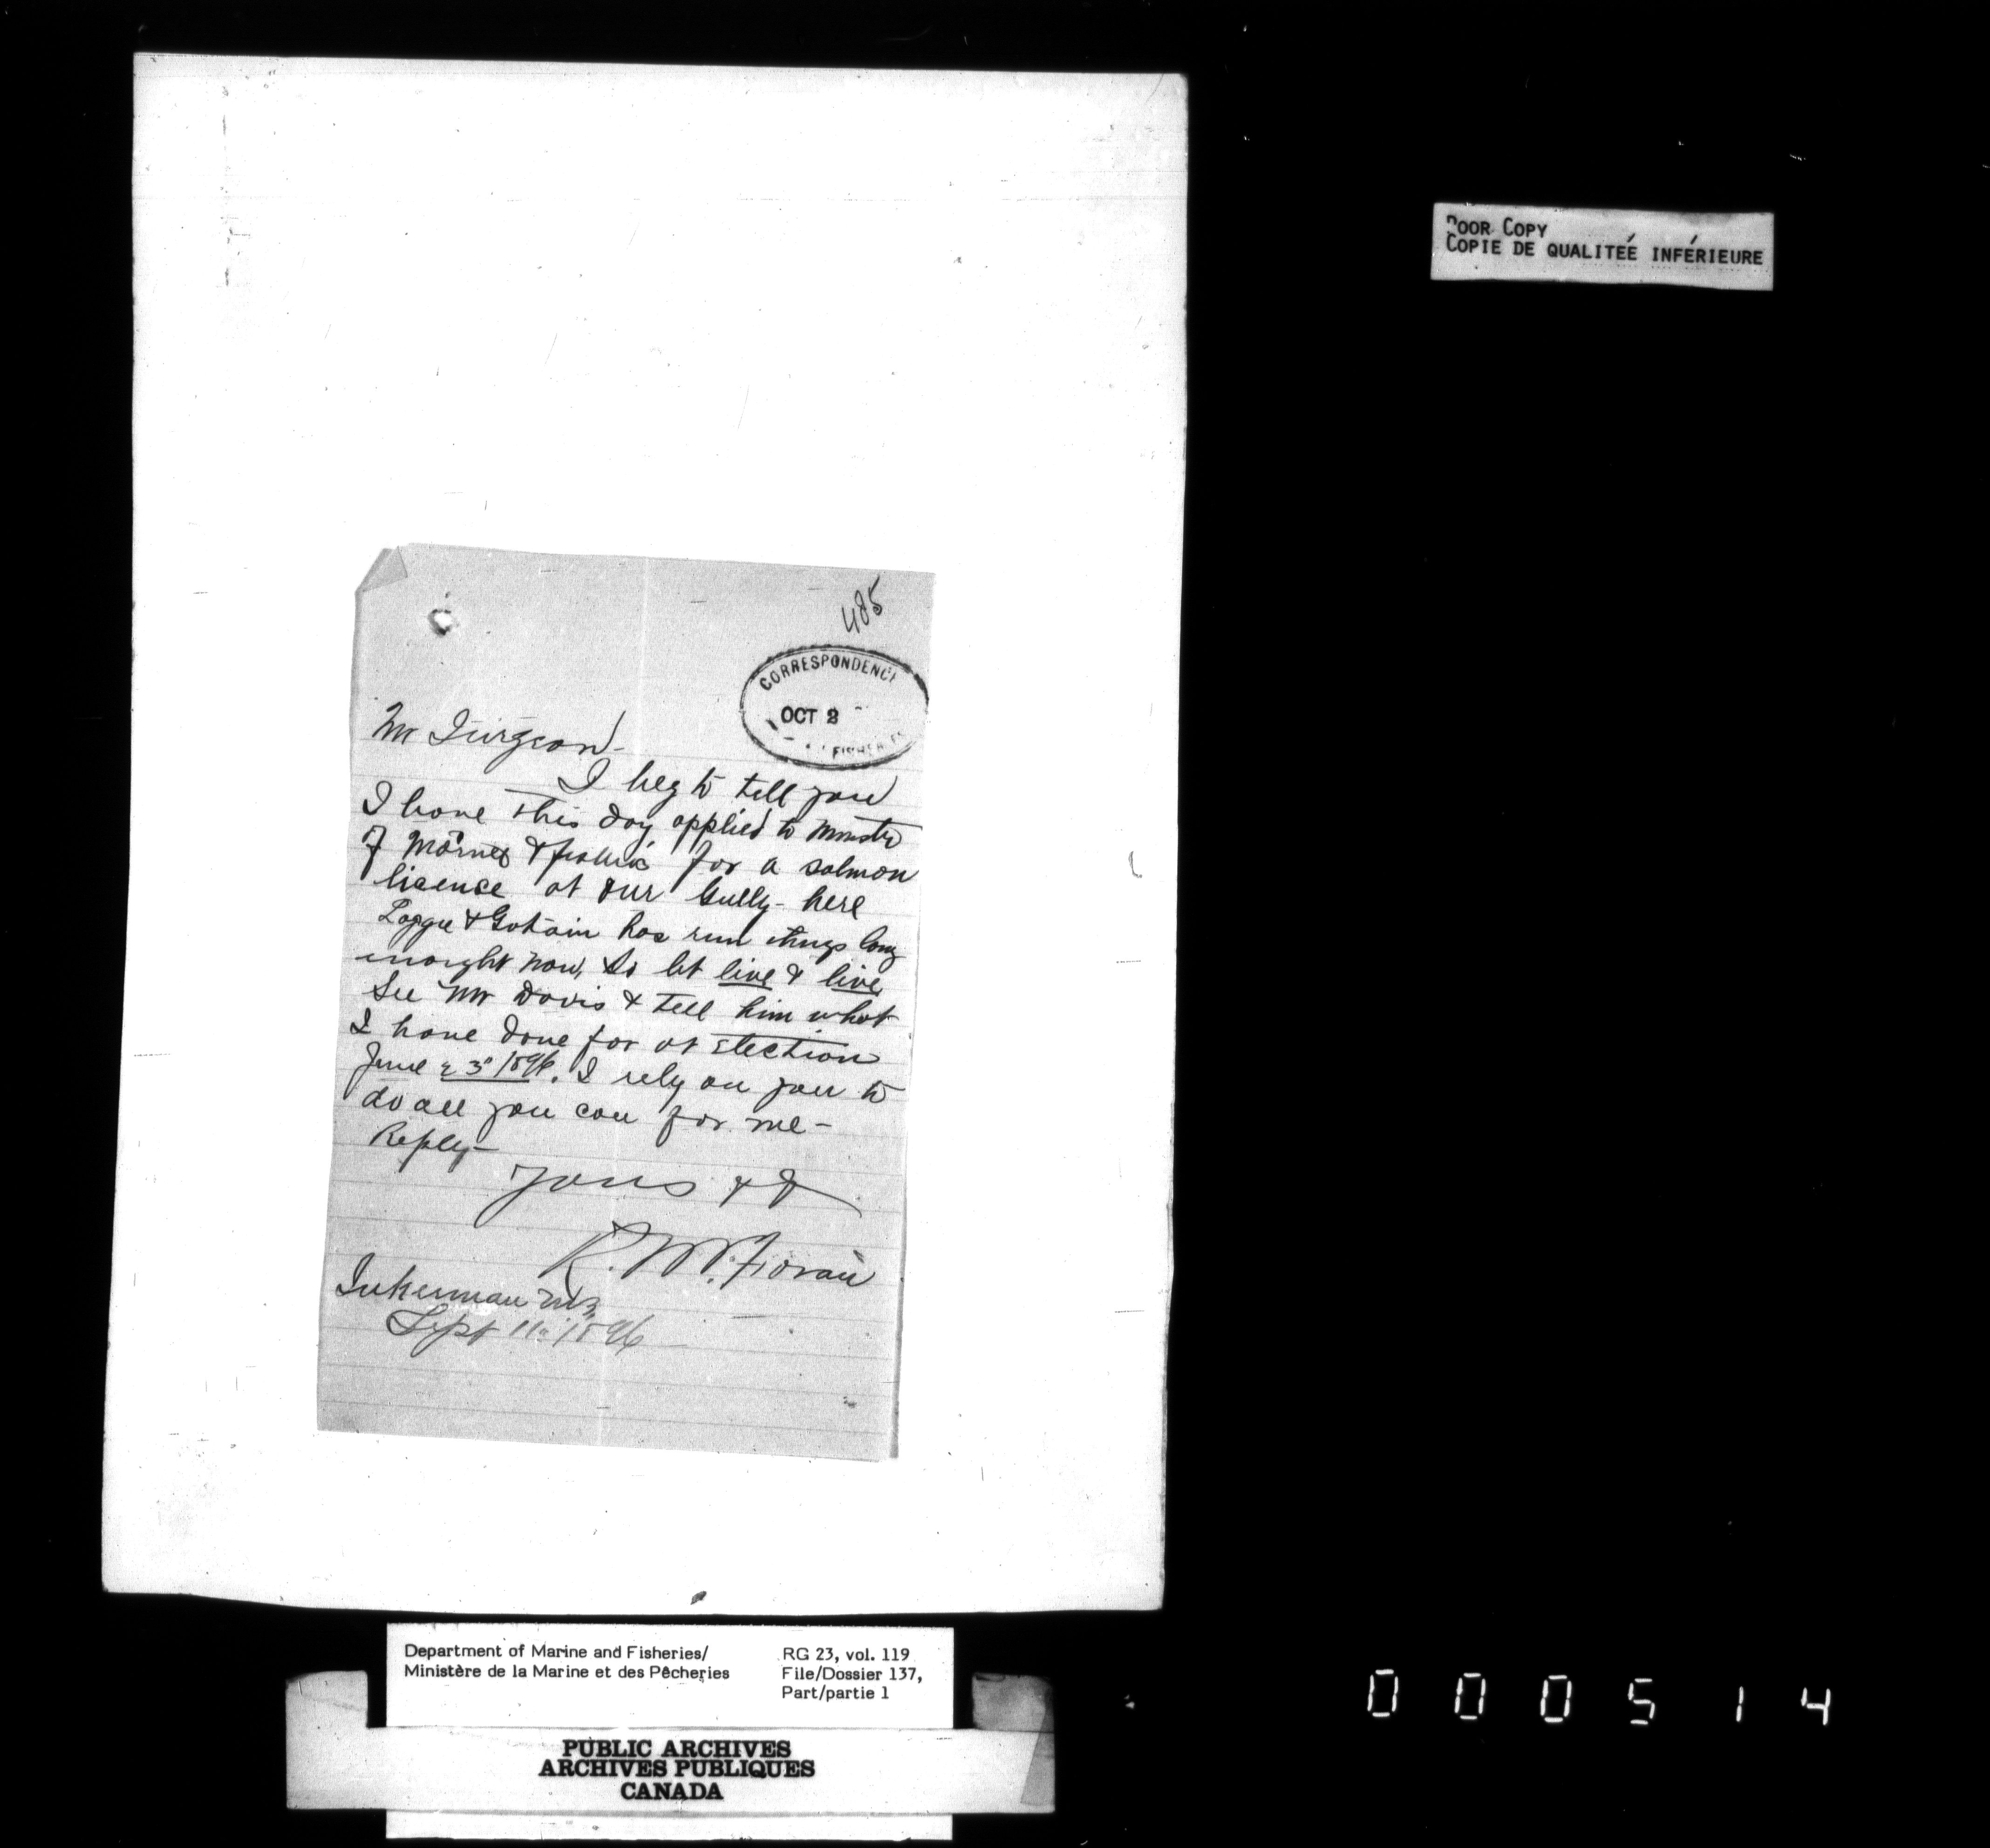 POOR COPY
COPIE DE QUALITEÉ INFÉRIEURE
485
CORRESPONDENCE
OCT 2
FISHER
Mr Turgeon -
I beg to tell you
I have this day applied to Ministr
of Marine & for a salmon
license at our Gully - here
Loggie & has run things long
enought now, So let live & live
See Mr Davis & tell him what
I have done for at Election
June 23" 1896. I rely on you to
do all you can for me -
Reply -
Yours &
R. W.
Inkerman NB.
Sept 11" 1896
Department of Marine and Fisheries/
Ministère de la Marine et des Pêcheries
RG 23, vol. 119
File/Dossier 137,
Part/partie 1
PUBLIC ARCHIVES
ARCHIVES PUBLIQUES
CANADA
000514